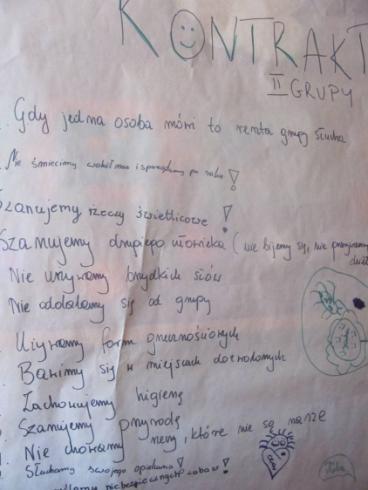 KONTRAKT
II GRUPY
Gdy jedna osoba mówi to reszta grupy słucha
Nie śmiecimy wokół nas i sprzątamy po sobie!
Szanujemy rzeczy świetlicowe!
Szanujemy drugiego człowieka (nie bijemy się, nie
Nie używamy brzydkich słów
Nie oddalamy się od grupy
Używamy form grzecznościowych
Bawimy się w miejscach dozwolonych
Zachowujemy higienę
Szanujemy przyrodę
Nie chowamy rzeczy, które nie są nasze
Słuchamy swojego opiekuna!
niebezpiecznych zabaw!